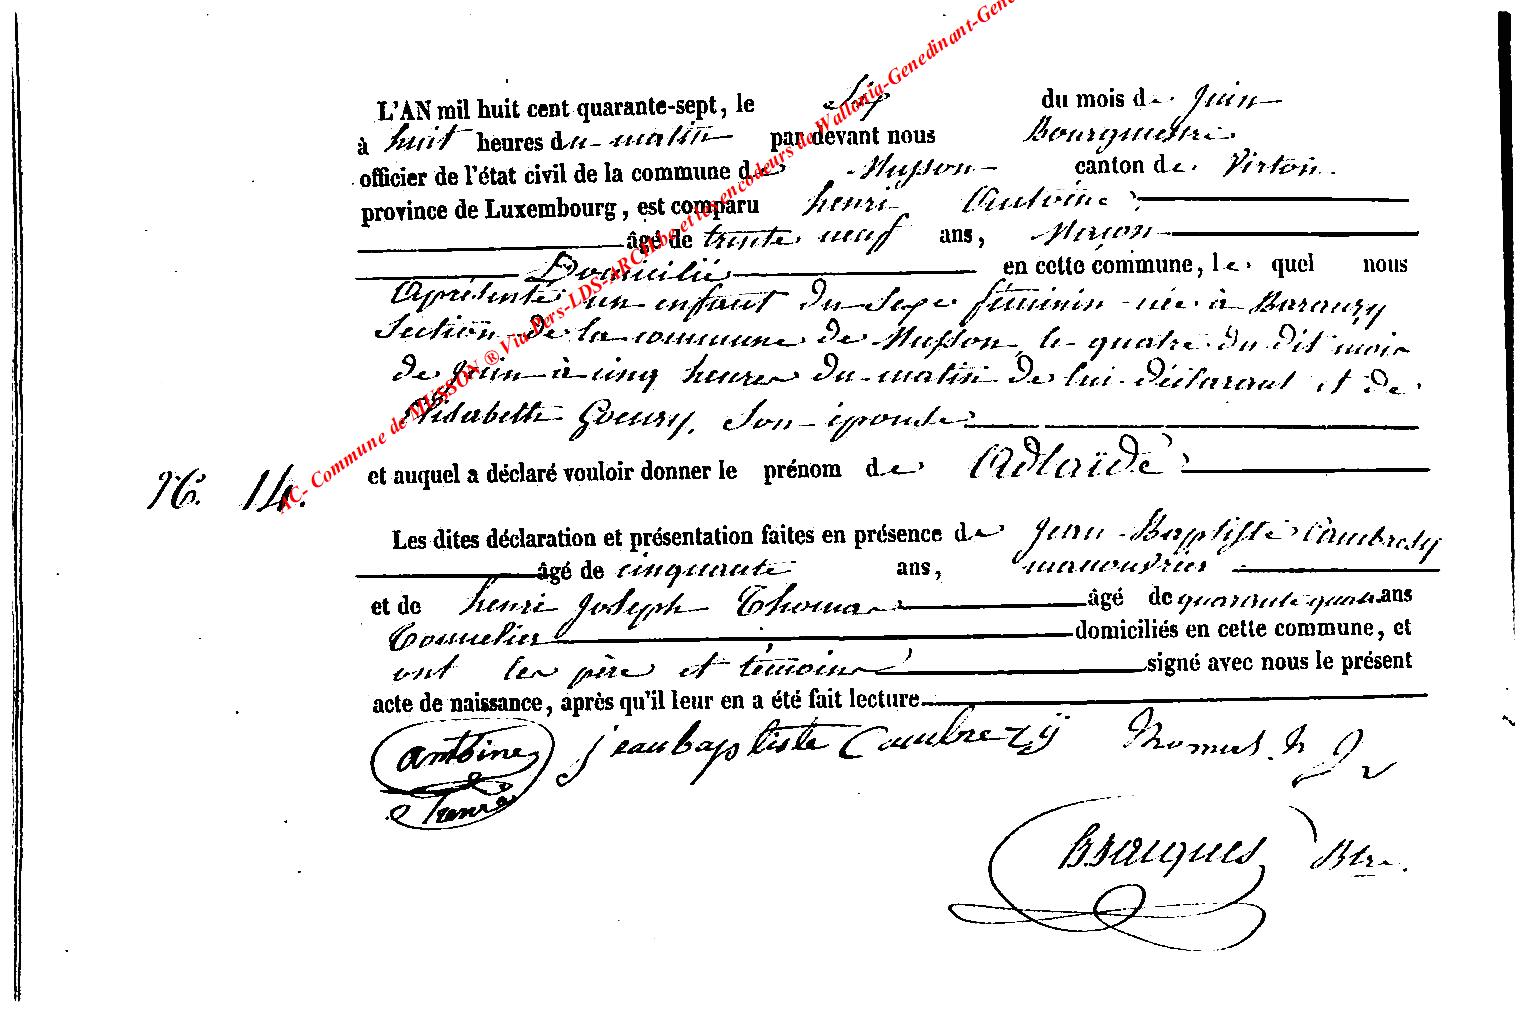 AC- Commune de MUSSON ® Via Pers-LDS-ARCH.be et les encodeurs de Wallonia-Genedinant-Gene
L'AN mil huit cent quarante-sept, le Six du mois de Juin
à huit heures du matin par devant nous Bourgmestre
officier de l'état civil de la commune de Musson canton de Virton.
province de Luxembourg, est comparu henri Antoine
âgé de trente neuf ans, Maçon
Domicilié en cette commune, le quel nous
a présenté un enfant du Sexe féminin née à Baranzy
Section de la commune de Musson, le quatre du dit mois
de Juin à cinq heures du matin de lui déclarant et de
Elisabeth Goeury, Son épouse
et auquel a déclaré vouloir donner le prénom de Adlaïde
N°. 14.
Les dites déclaration et présentation faites en présence de Jean Baptiste Cambresy
âgé de cinquante ans, manouvrier
et de henri Joseph Thomas âgé de quarante quatre ans
Tonnelier domiciliés en cette commune, et
ont les père et témoins signé avec nous le présent
acte de naissance, après qu'il leur en a été fait lecture
antoine jeanbaptiste Cambrezÿ Thomas h J
henri
Bsauques Btre.